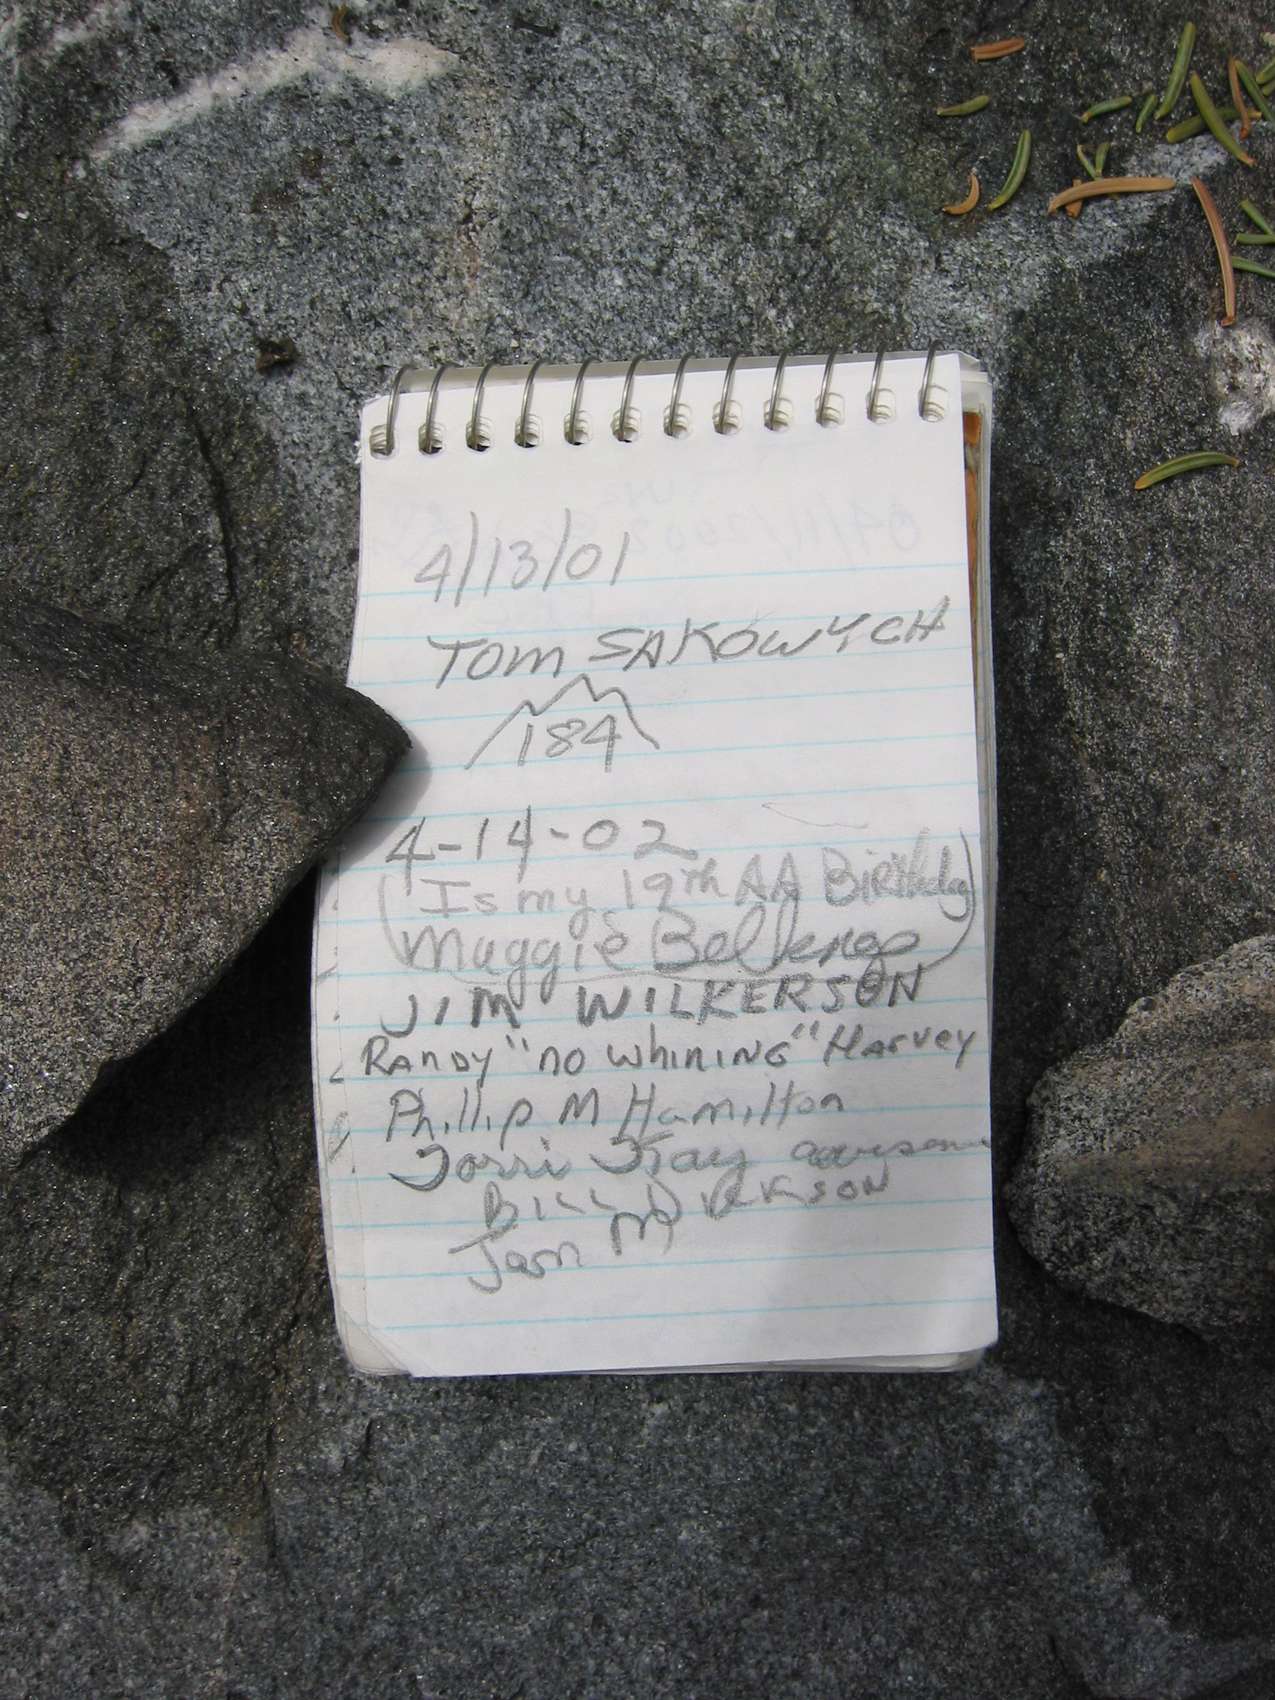 4/13/01
TOM SAKOWYCH
184
4-14-02
(Is my 19th AA Birthday
Maggie)
JIM WILKERSON
RANDY "no whining" Harvey
Phillip M Hamilton
Torri
BILL DICKSON
Jasn M